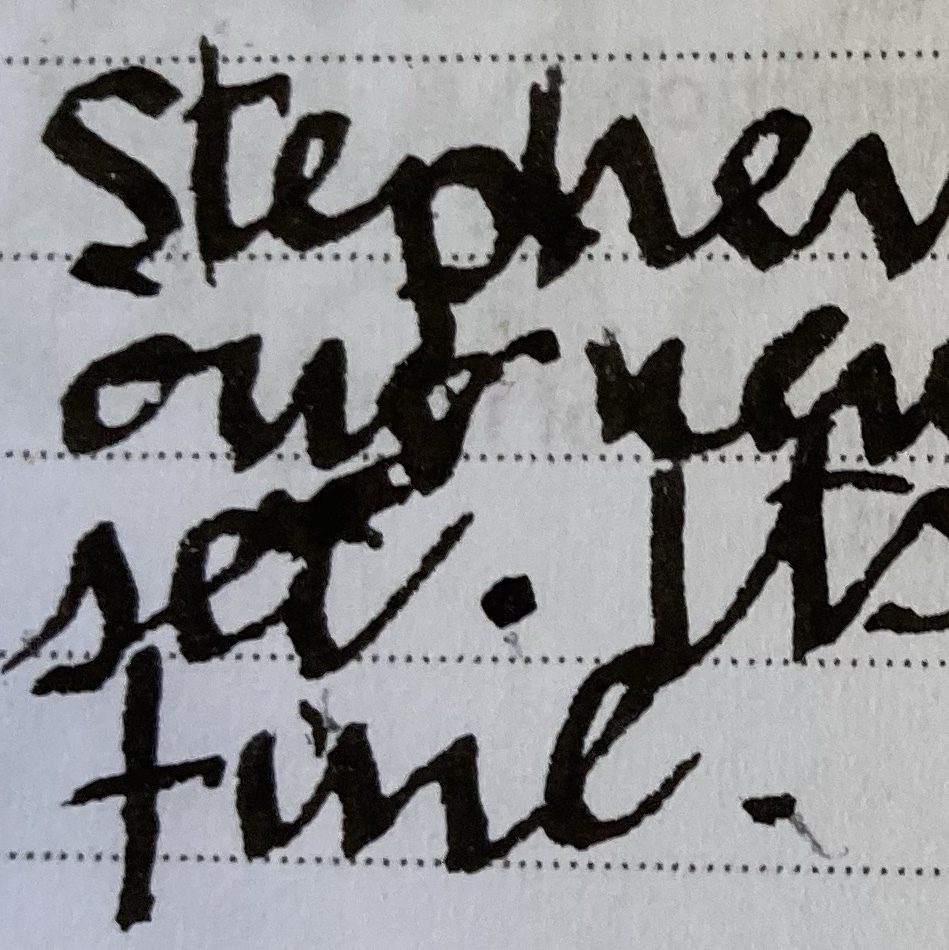 Stephen
our new
set. Its
fine.